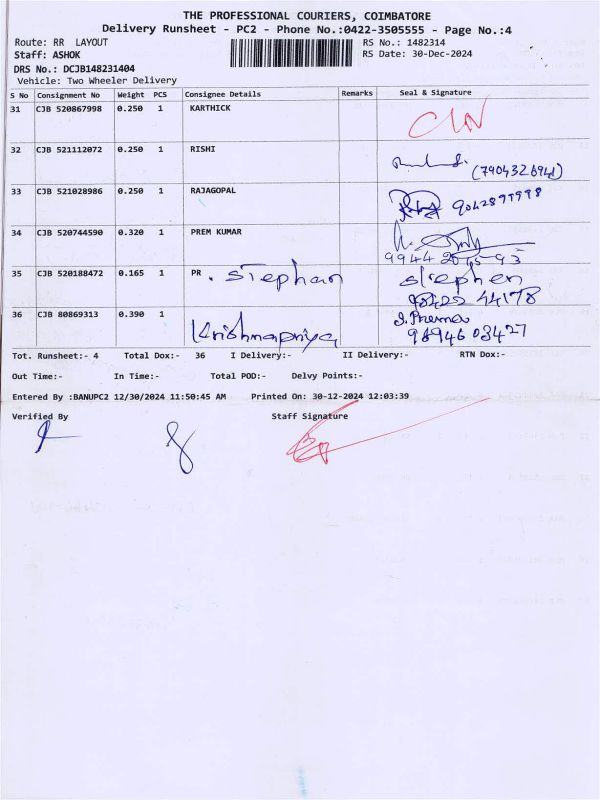 THE PROFESSIONAL COURIERS, COIMBATORE
Delivery Runsheet - PC2 - Phone No.:0422-3505555 - Page No.:4
Route: RR LAYOUT RS No.: 1482314
Staff: ASHOK RS Date: 30-Dec-2024
DRS No.: DCJB148231404
Vehicle: Two Wheeler Delivery
S No Consignment No Weight PCS Consignee Details Remarks Seal & Signature
31 CJB 520867998 0.250 1 KARTHICK
32 CJB 521112072 0.250 1 RISHI
(7904326941)
33 CJB 521028986 0.250 1 RAJAGOPAL
9042899998
34 CJB 520744590 0.320 1 PREM KUMAR
35 CJB 520188472 0.165 1 PR . Stephan Stephen
44178
36 CJB 80869313 0.390 1 Krishnapriya S. Prema
9894603427
Tot. Runsheet:- 4 Total Dox:- 36 I Delivery:- II Delivery:- RTN Dox:-
Out Time:- In Time:- Total POD:- Delvy Points:-
Entered By :BANUPC2 12/30/2024 11:50:45 AM Printed On: 30-12-2024 12:03:39
Verified By Staff Signature